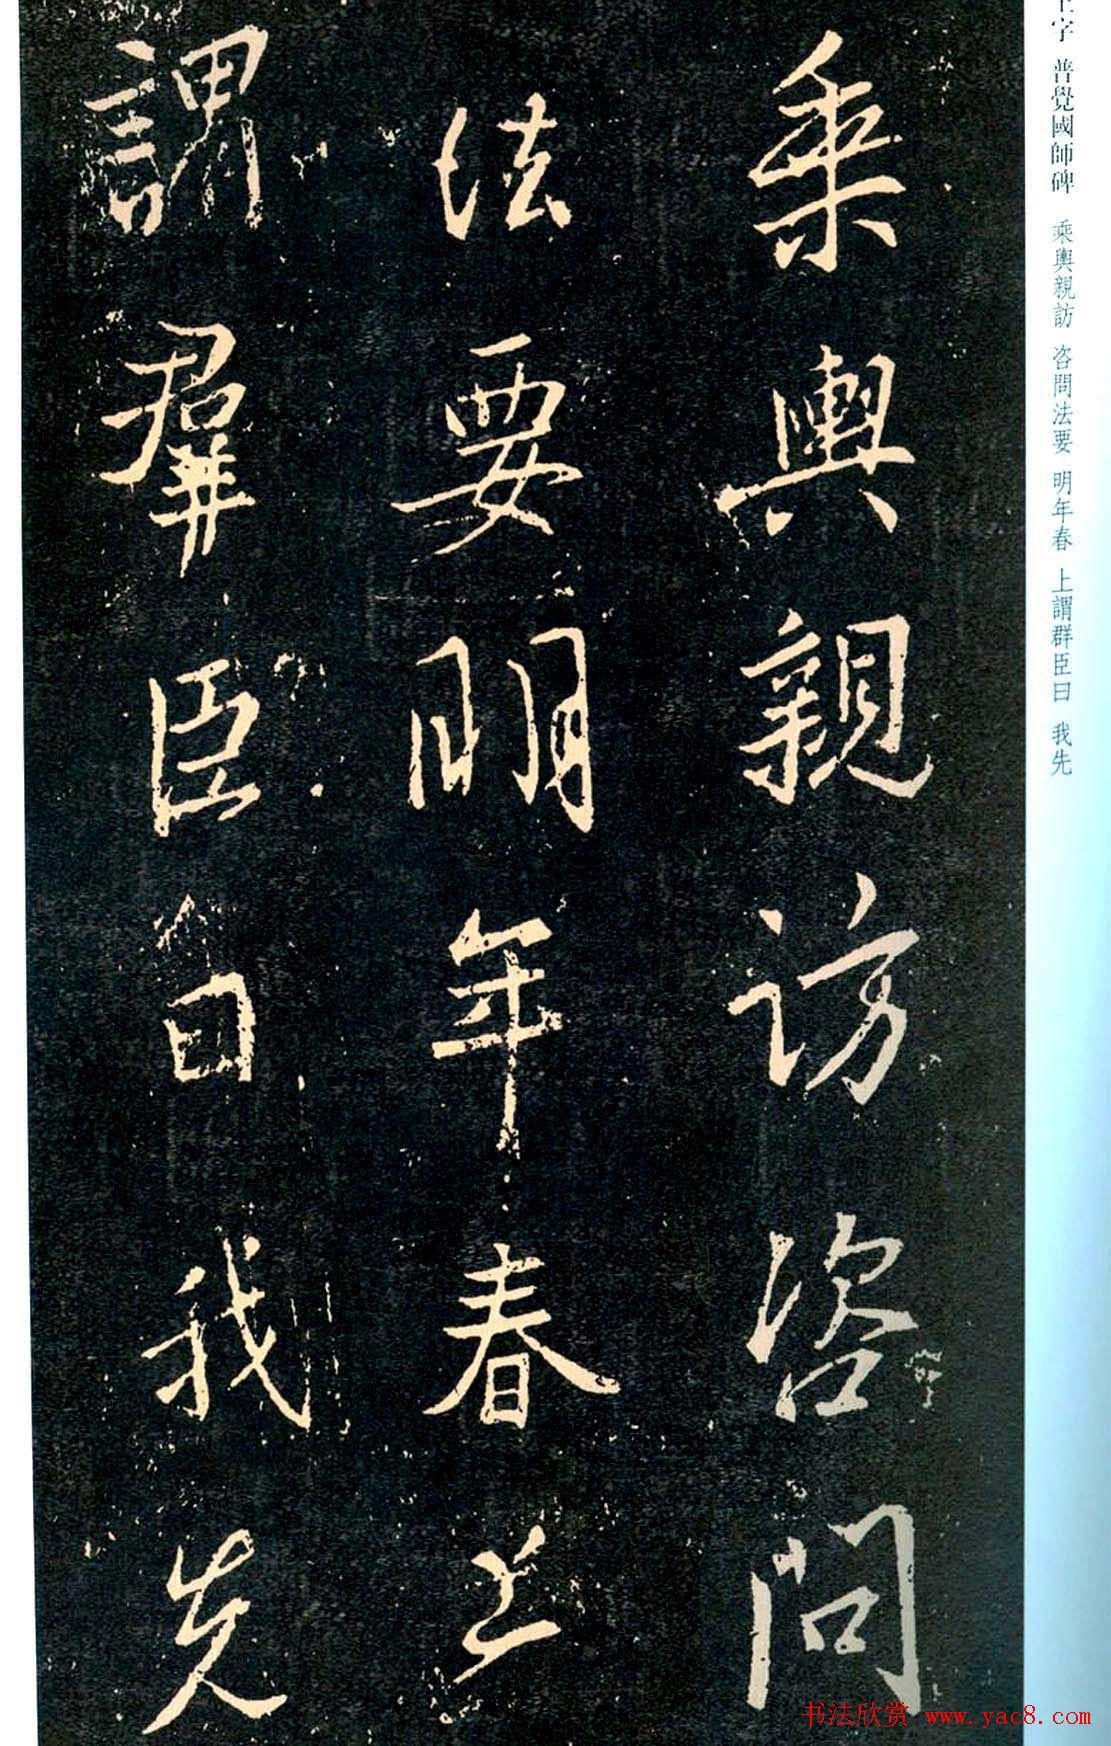 乘輿親訪咨問
法要明年春上
謂羣臣曰我先
王字 普覺國師碑 乘輿親訪 咨問法要 明年春 上謂群臣曰 我先
书法欣赏 www.yac8.com